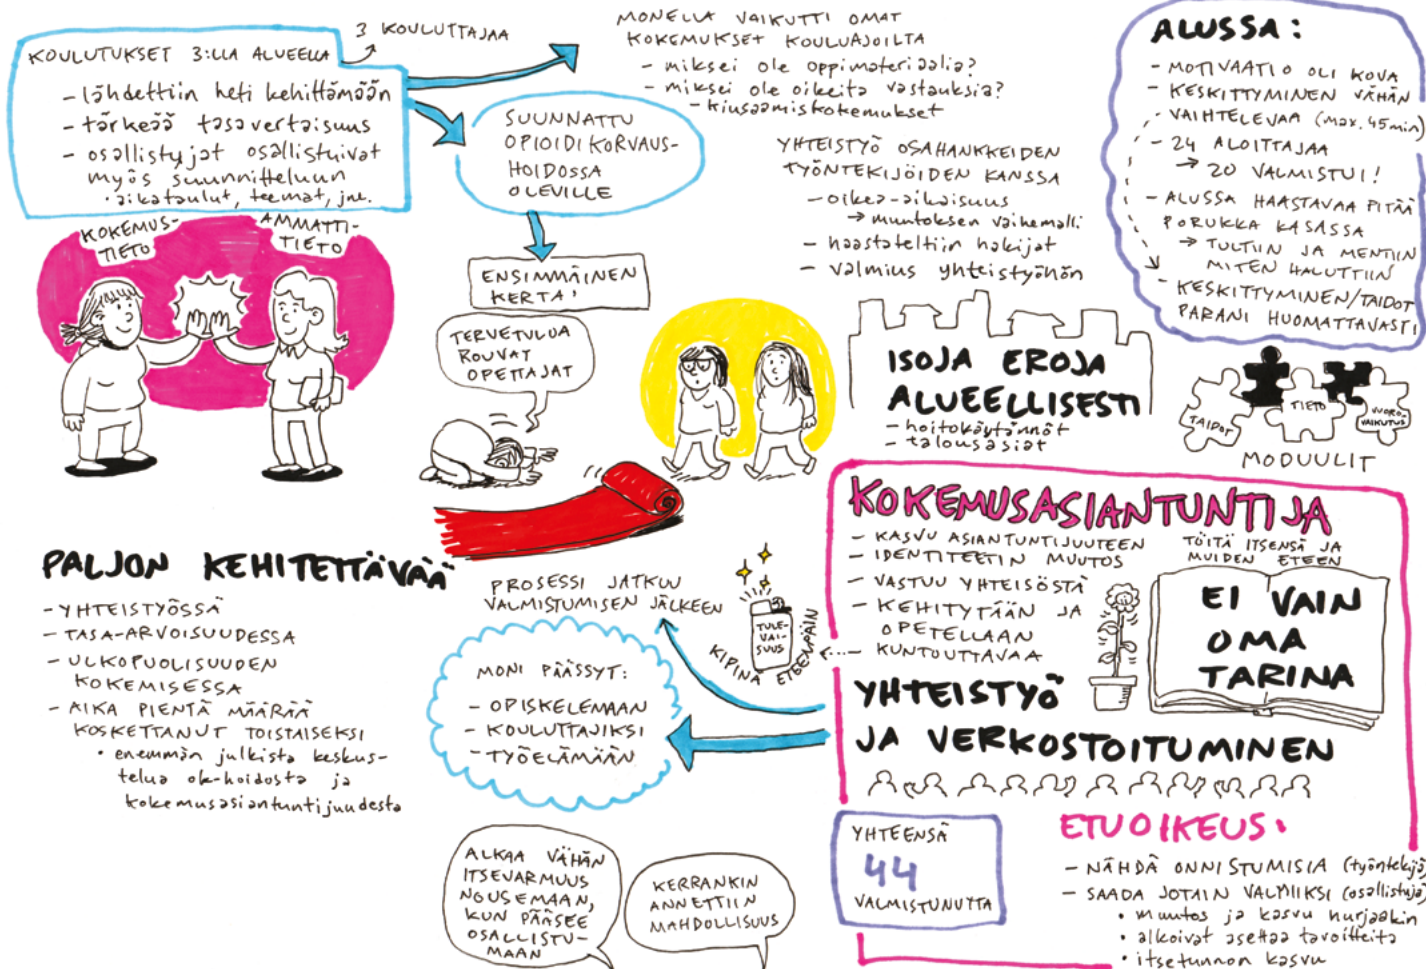 KOULUTUKSET 3:LLA ALUEELLA
3 KOULUTTAJAA
- lähdettiin heti kehittämään
- tärkeää tasavertaisuus
- osallistujat osallistuivat
myös suunnitteluun
• aikataulut, teemat, jne.
KOKEMUS-
TIETO
AMMATTI-
TIETO
MONELLA VAIKUTTI OMAT
KOKEMUKSET KOULUAJOILTA
- miksei ole oppimateriaalia?
- miksei ole oikeita vastauksia?
- kiusaamiskokemukset
SUUNNATTU
OPIOIDIKORVAUS-
HOIDOSSA
OLEVILLE
ENSIMMÄINEN
KERTA!
TERVETULOA
ROUVAT
OPETTAJAT
YHTEISTYÖ OSAHANKKEIDEN
TYÖNTEKIJÖIDEN KANSSA
- oikea-aikaisuus
→ muutoksen vaihemalli
- haastateltiin hakijat
- valmius yhteistyöhön
ALUSSA:
- MOTIVAATIO OLI KOVA
- KESKITTYMINEN VÄHÄN
- VAIHTELEVAA (max. 45min)
- 24 ALOITTAJAA
→ 20 VALMISTUI!
- ALUSSA HAASTAVAA PITÄÄ
PORUKKA KASASSA
→ TULTIIN JA MENTIIN
MITEN HALUTTIIN
- KESKITTYMINEN/TAIDOT
PARANI HUOMATTAVASTI
ISOJA EROJA
ALUEELLISESTI
- hoitokäytännöt
- talousasiat
TAIDOT
TIETO
VUORO-
VAIKUTUS
MODUULIT
PALJON KEHITETTÄVÄÄ
- YHTEISTYÖSSÄ
- TASA-ARVOISUUDESSA
- ULKOPUOLISUUDEN
KOKEMISESSA
- AIKA PIENTÄ MÄÄRÄÄ
KOSKETTANUT TOISTAISEKSI
• enemmän julkista keskus-
telua ok-hoidosta ja
kokemusasiantuntijuudesta
PROSESSI JATKUU
VALMISTUMISEN JÄLKEEN
MONI PÄÄSSYT:
- OPISKELEMAAN
- KOULUTTAJIKSI
- TYÖELÄMÄÄN
TULE-
VAI-
SUUS
KIPINÄ ETEENPÄIN
KOKEMUSASIANTUNTIJA
- KASVU ASIANTUNTIJUUTEEN
- IDENTITEETIN MUUTOS
- VASTUU YHTEISÖSTÄ
- KEHITYTÄÄN JA
OPETELLAAN
- KUNTOUTTAVAA
TÖITÄ ITSENSÄ JA
MUIDEN ETEEN
EI VAIN
OMA
TARINA
YHTEISTYÖ
JA VERKOSTOITUMINEN
YHTEENSÄ
44
VALMISTUNUTTA
ETUOIKEUS:
- NÄHDÄ ONNISTUMISIA (työntekijä)
- SAADA JOTAIN VALMIIKSI (osallistuja)
• muutos ja kasvu hurjaakin
• alkoivat asettaa tavoitteita
• itsetunnon kasvu
ALKAA VÄHÄN
ITSEVARMUUS
NOUSEMAAN,
KUN PÄÄSEE
OSALLISTU-
MAAN
KERRANKIN
ANNETTIIN
MAHDOLLISUUS